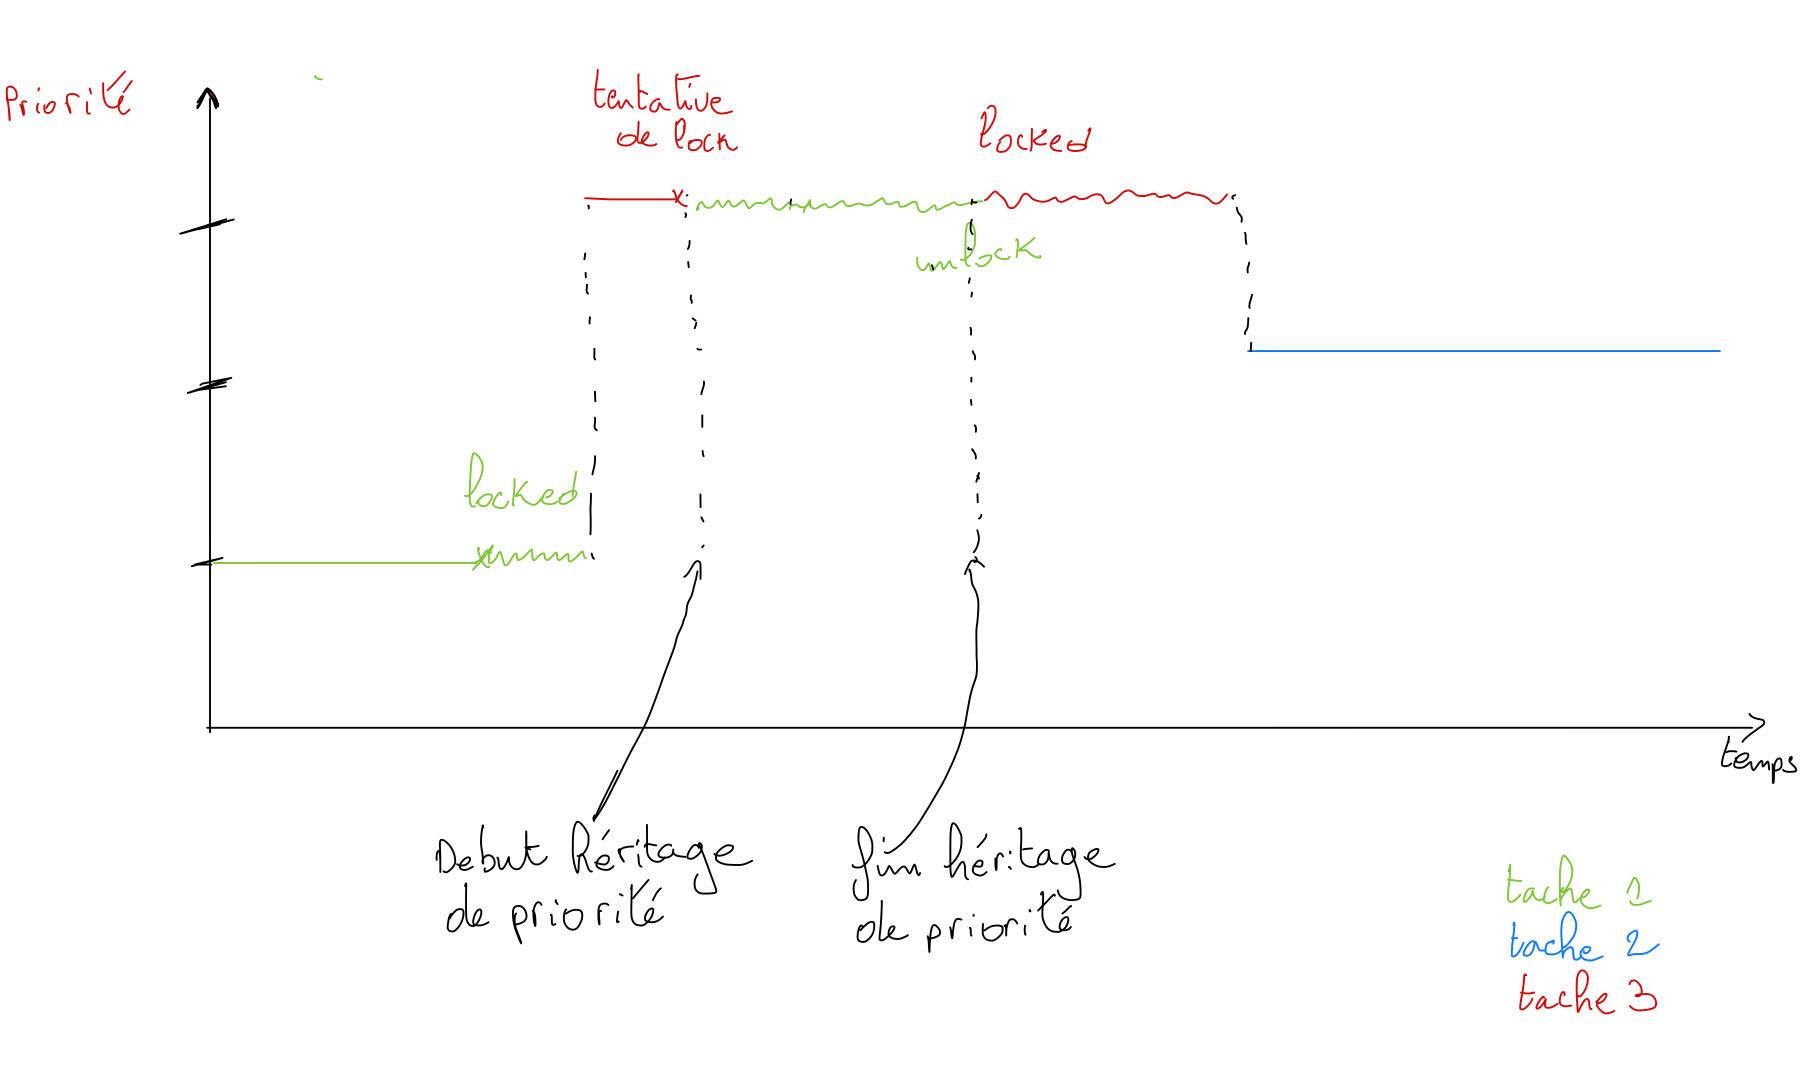 Priorité
tentative
de lock
locked
unlock
locked
temps
Debut héritage
de priorité
fin héritage
de priorité
tache 1
tache 2
tache 3